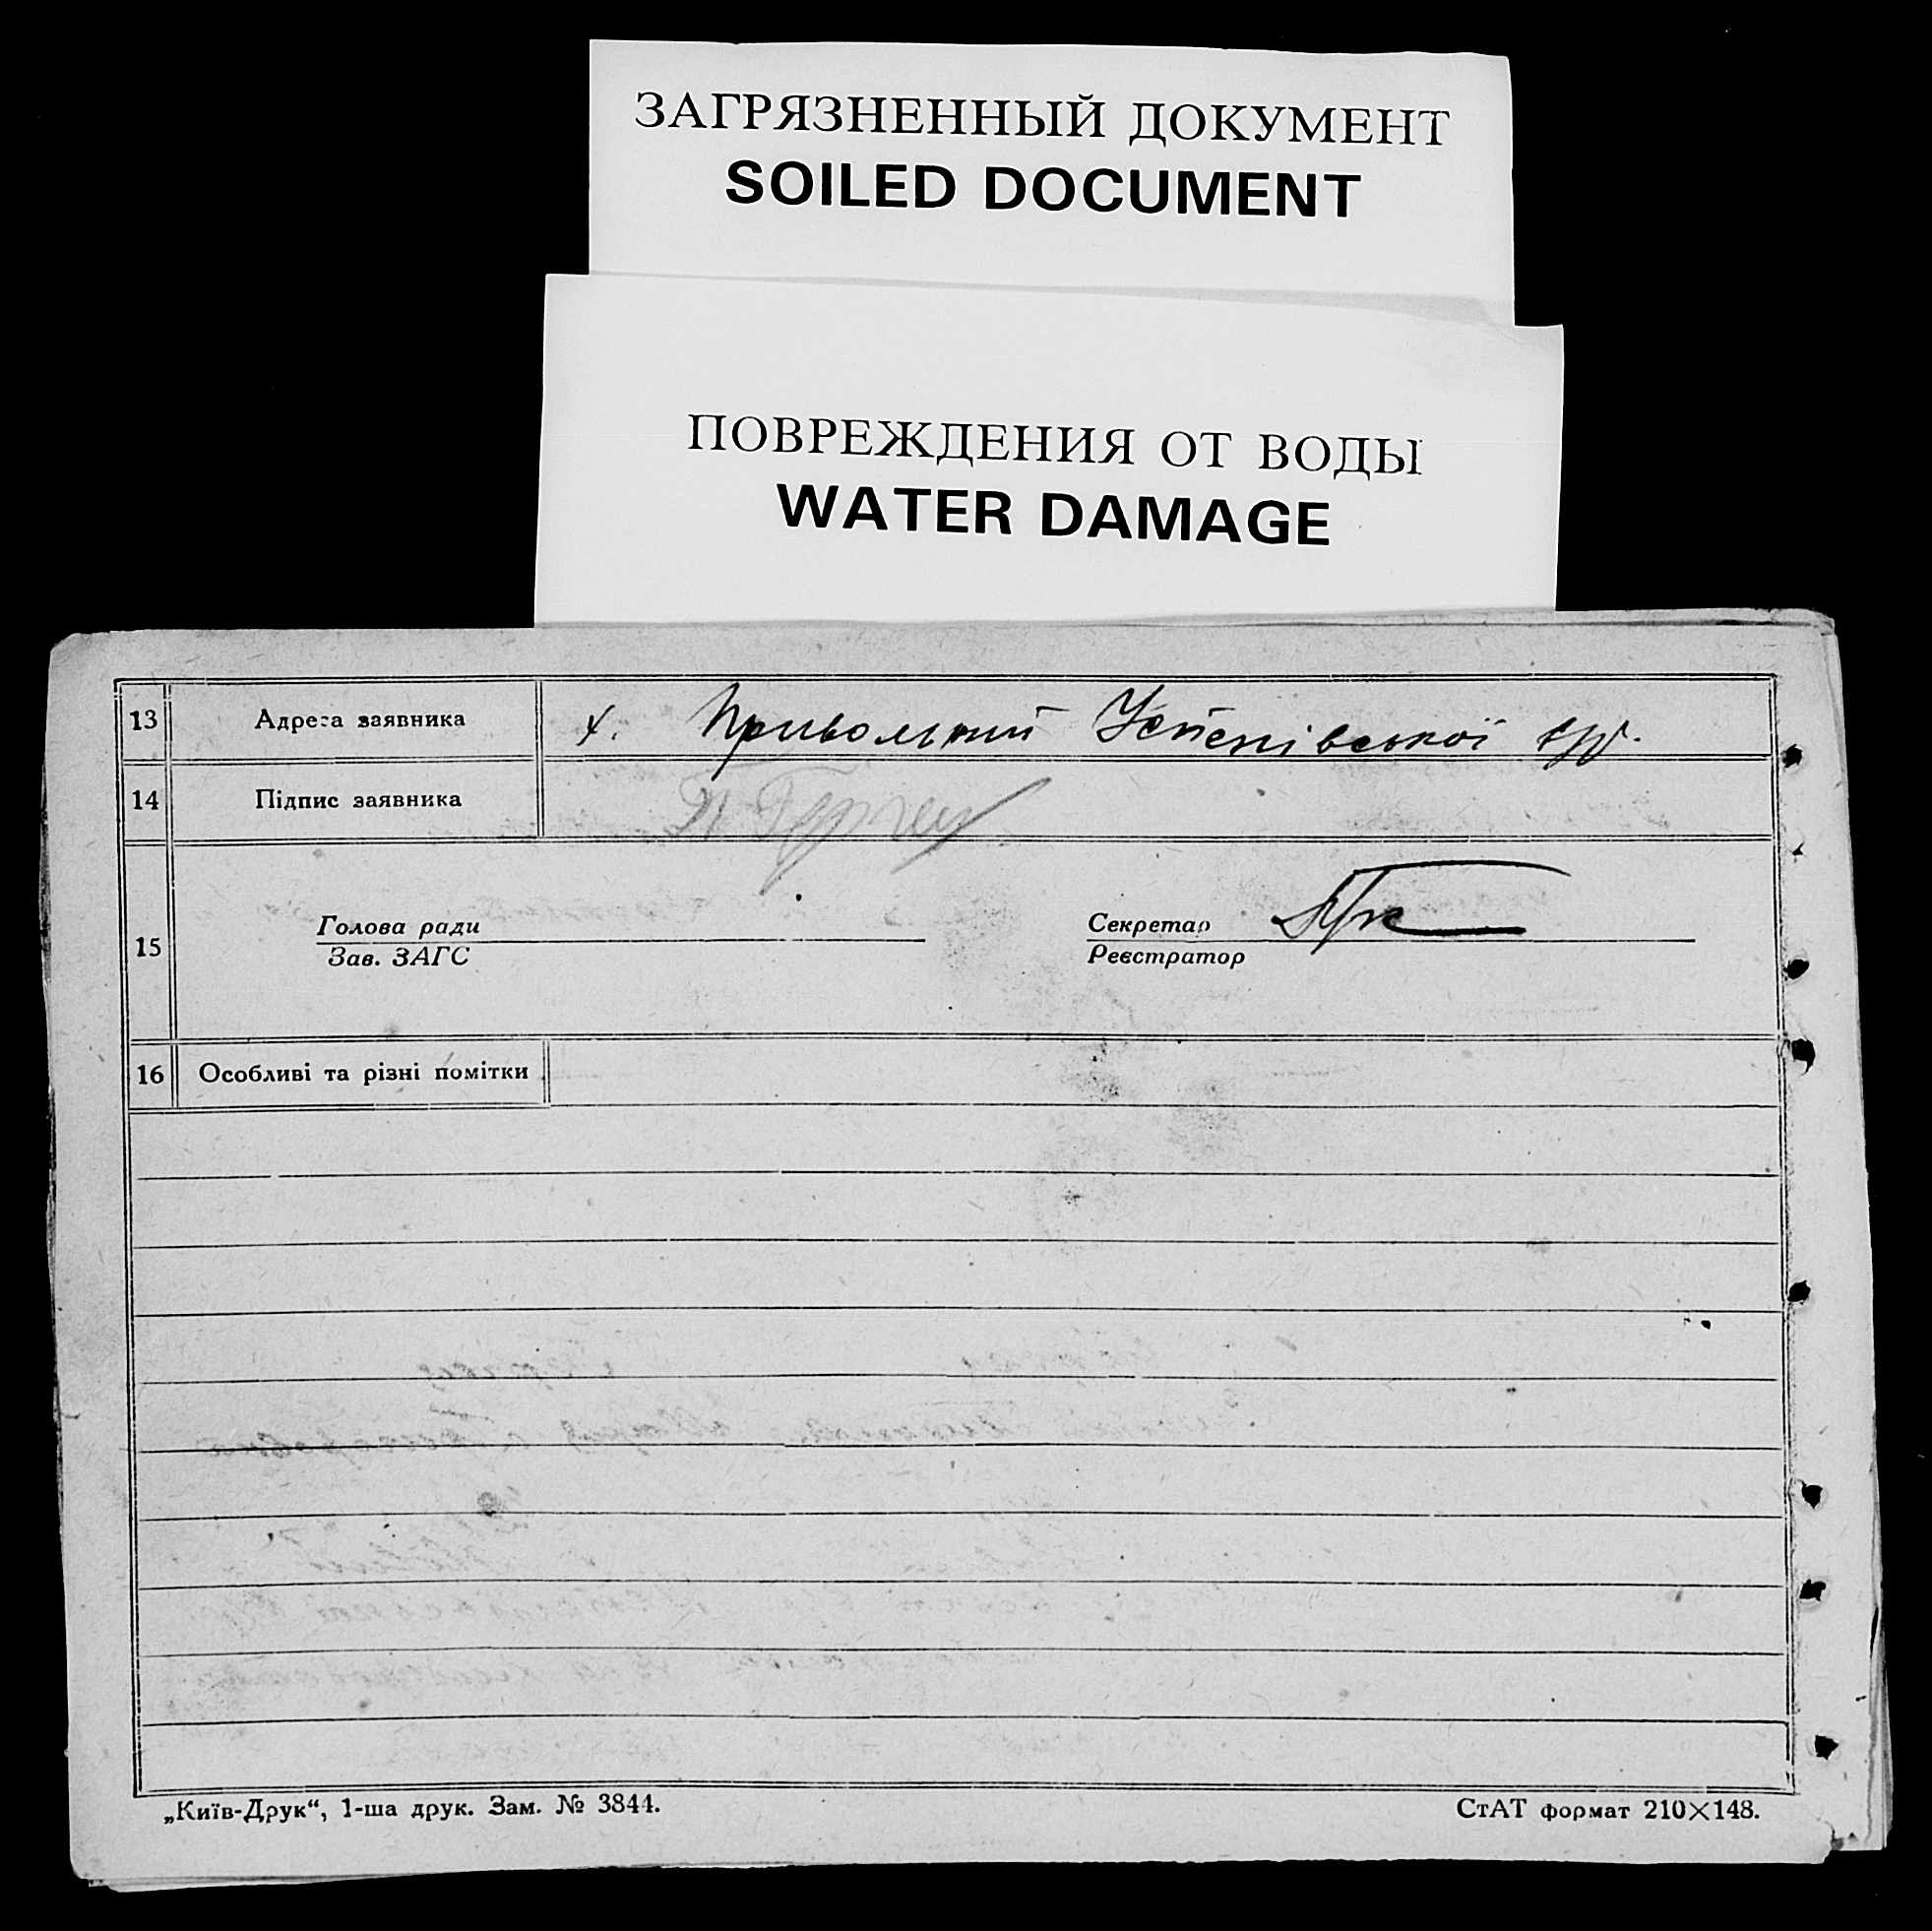 ЗАГРЯЗНЕННЫЙ ДОКУМЕНТ
SOILED DOCUMENT
ПОВРЕЖДЕНИЯ ОТ ВОДЫ
WATER DAMAGE
13 Адреса заявника х. Привольний Успенівської с/р.
14 Підпис заявника
15 Голова ради Секретар
Зав. ЗАГС Реєстратор
16 Особливі та різні помітки
„Київ-Друк“, 1-ша друк. Зам. № 3844. СтАТ формат 210×148.